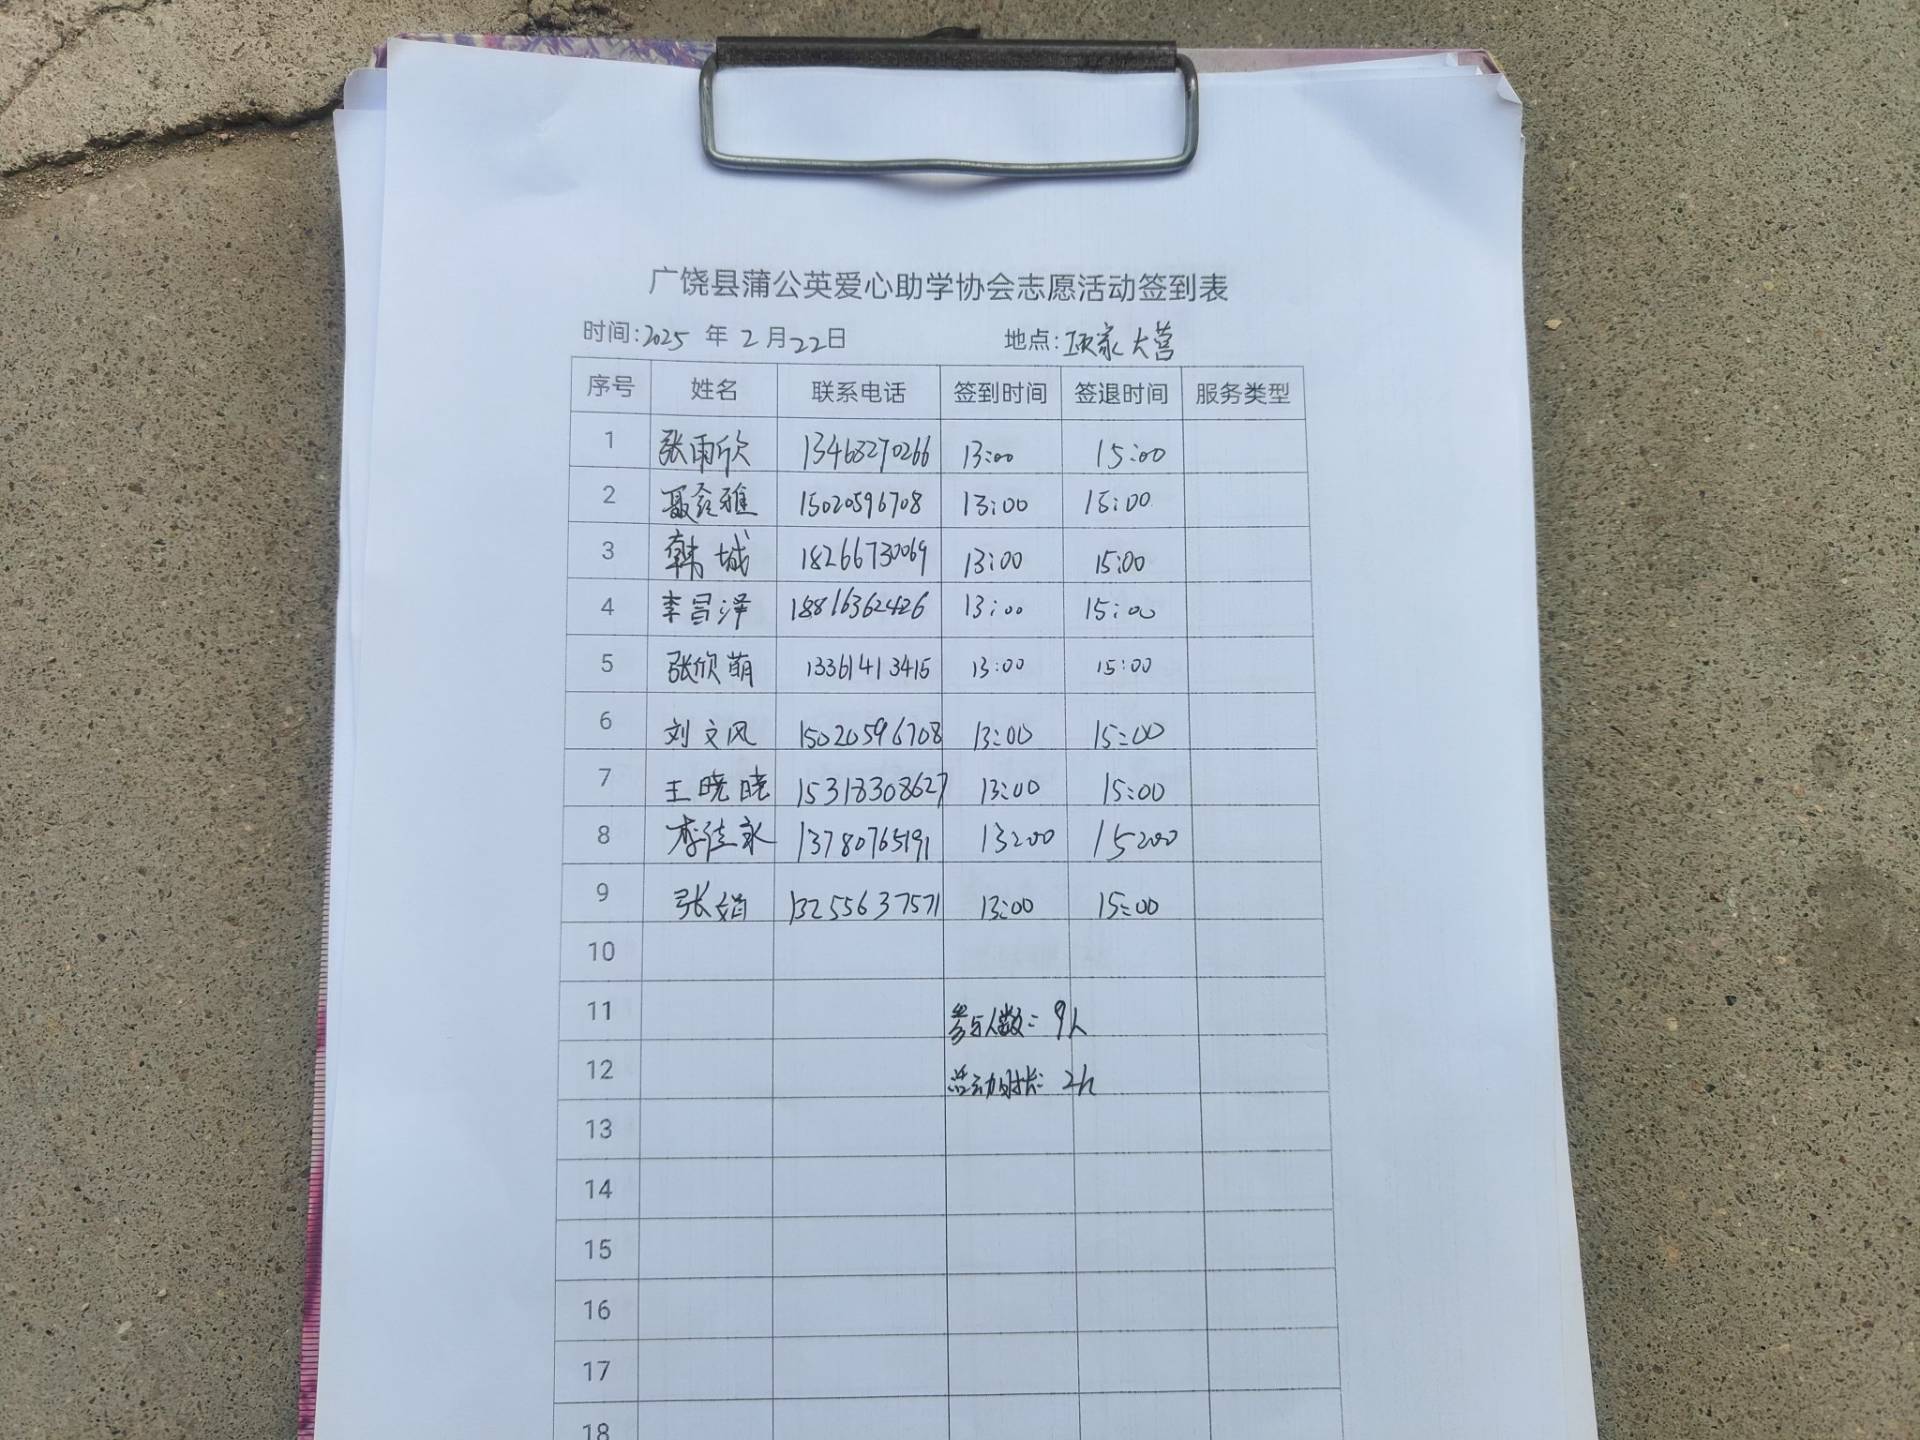 广饶县蒲公英爱心助学协会志愿活动签到表
时间:2025 年 2 月 22日 地点:项家大营
序号 姓名 联系电话 签到时间 签退时间 服务类型
1 张雨欣 13468270266 13:00 15:00
2 15020596708 13:00 15:00
3 韩城 18266730069 13:00 15:00
4 李昌泽 18816362426 13:00 15:00
5 张欣萌 13361413415 13:00 15:00
6 刘文风 15020596708 13:00 15:00
7 王晓晓 15318308627 13:00 15:00
8 李佳永 13780765191 13:00 15:00
9 张娟 13255637571 13:00 15:00
10
11 参与人数: 9人
12 活动时长: 2h
13
14
15
16
17
18